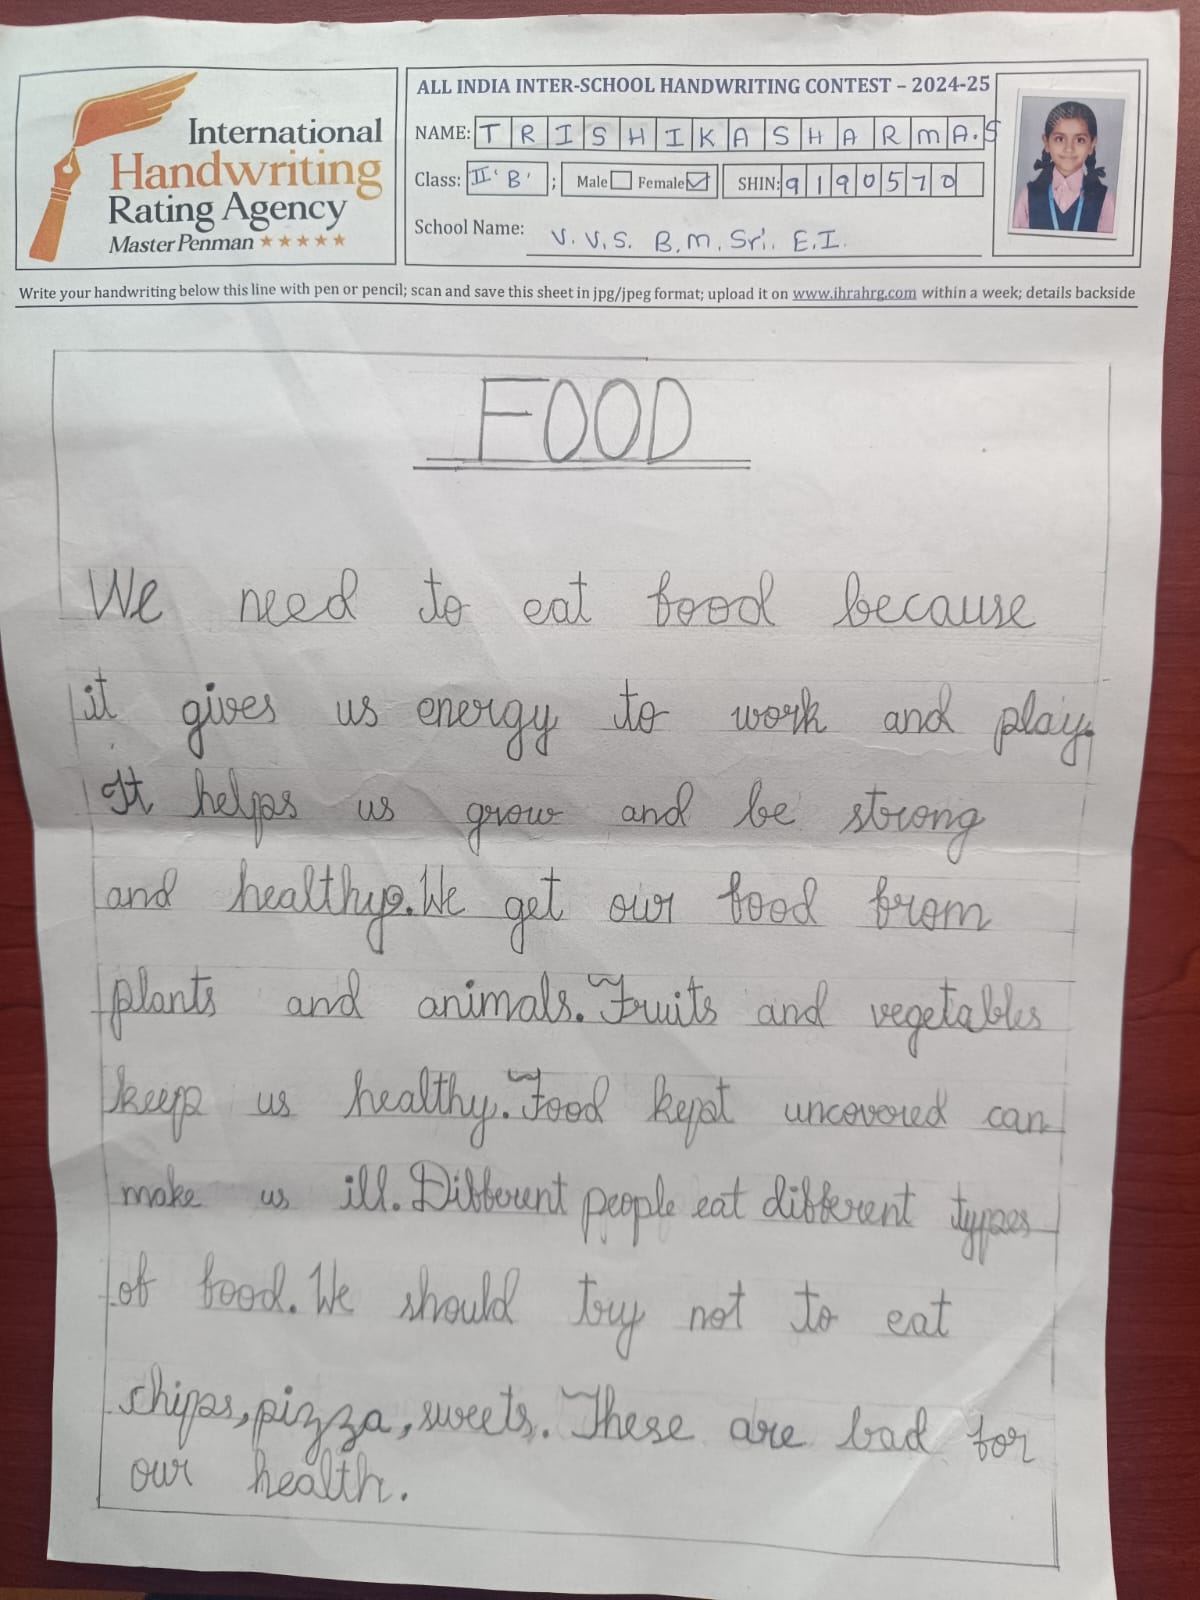 International
Handwriting
Rating Agency
Master Penman ★★★★★
ALL INDIA INTER-SCHOOL HANDWRITING CONTEST – 2024-25
NAME: TRISHIKA SHARMA.S
Class: II 'B' ; Male ☐ Female ☑ SHIN: 9190570
School Name: V.V.S. B.M. Sri. E.I.
Write your handwriting below this line with pen or pencil; scan and save this sheet in jpg/jpeg format; upload it on www.ihrahrg.com within a week; details backside
FOOD
We need to eat food because
it gives us energy to work and play.
It helps us grow and be strong
and healthy. We get our food from
plants and animals. Fruits and vegetables
keep us healthy. Food kept uncovered can
make us ill. Different people eat different types
of food. We should try not to eat
chips, pizza, sweets. These are bad for
our health.